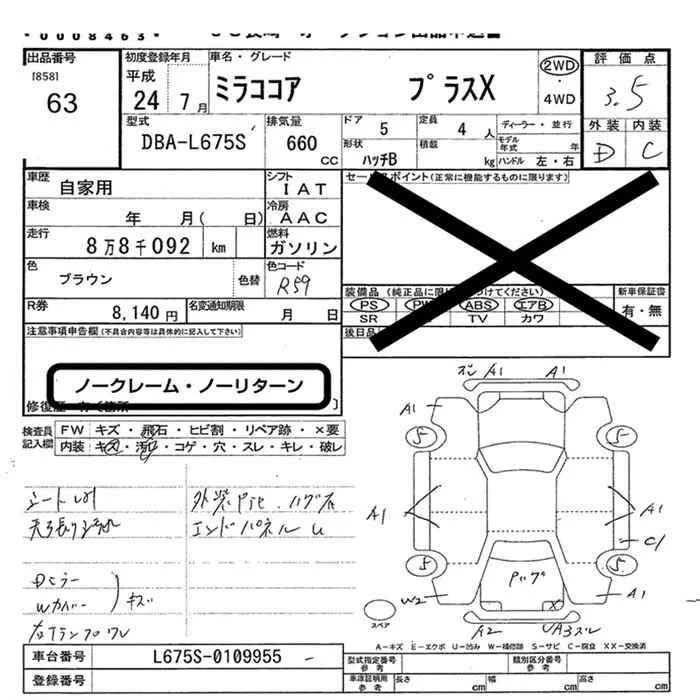 0008463
出品番号 初度登録年月 車名・グレード 2WD 評価点
[858] 平成
63 24 7月 ミラココア プラスX ・ 4WD 3.5
型式 排気量 ドア 5 定員 4 人 ディーラー・並行 外装 内装
DBA-L675S 660 CC 形状 ハッチB 積載 kg モデル年式 年 ハンドル 左・右 D C
車歴 自家用 シフト IAT セールスポイント(正常に機能するものに限ります)
車検 年 月( 日) 冷房 AAC
走行 8万8千092 km 燃料 ガソリン
色 ブラウン 色替 色コード R59
装備品 (純正品に限 つけてください) 新車保証書
PS PW ABS エアB 有・無
SR TV カワ
R券 8,140円 名変通知期限 月 日 後日品
注意事項申告欄(不具合内容等は具体的に記入して下さい)
ノークレーム・ノーリターン
検査員 FW キズ・飛石・ヒビ割・リペア跡・×要
記入欄 内装 キズ・汚れ・コゲ・穴・スレ・キレ・破レ
ズレ A1 A1
A1
5 5
A1 A1
C1
5 5
W2 A1
A2 UA3ズレ
Dミラー
Wカバー キズ
エンドパネル U
スペア
A-キズ E-エクボ U-凹み W-補修跡 S-サビ C-腐食 XX-交換済
車台番号 L675S-0109955
登録番号
型式指定番号 参考 類別区分番号 参考
車庫証明用 参考 長さ cm 幅 cm 高さ cm